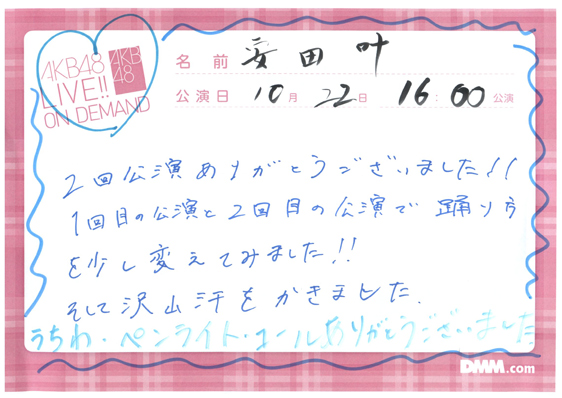 AKB48
LIVE!!
ON DEMAND
AKB
48
名前 安田叶
公演日 10月22日 16:00公演
2回公演ありがとうございました!!
1回目の公演と2回目の公演で踊り方
を少し変えてみました!!
そして沢山汗をかきました.
うちわ・ペンライト・コールありがとうございました
DMM.com